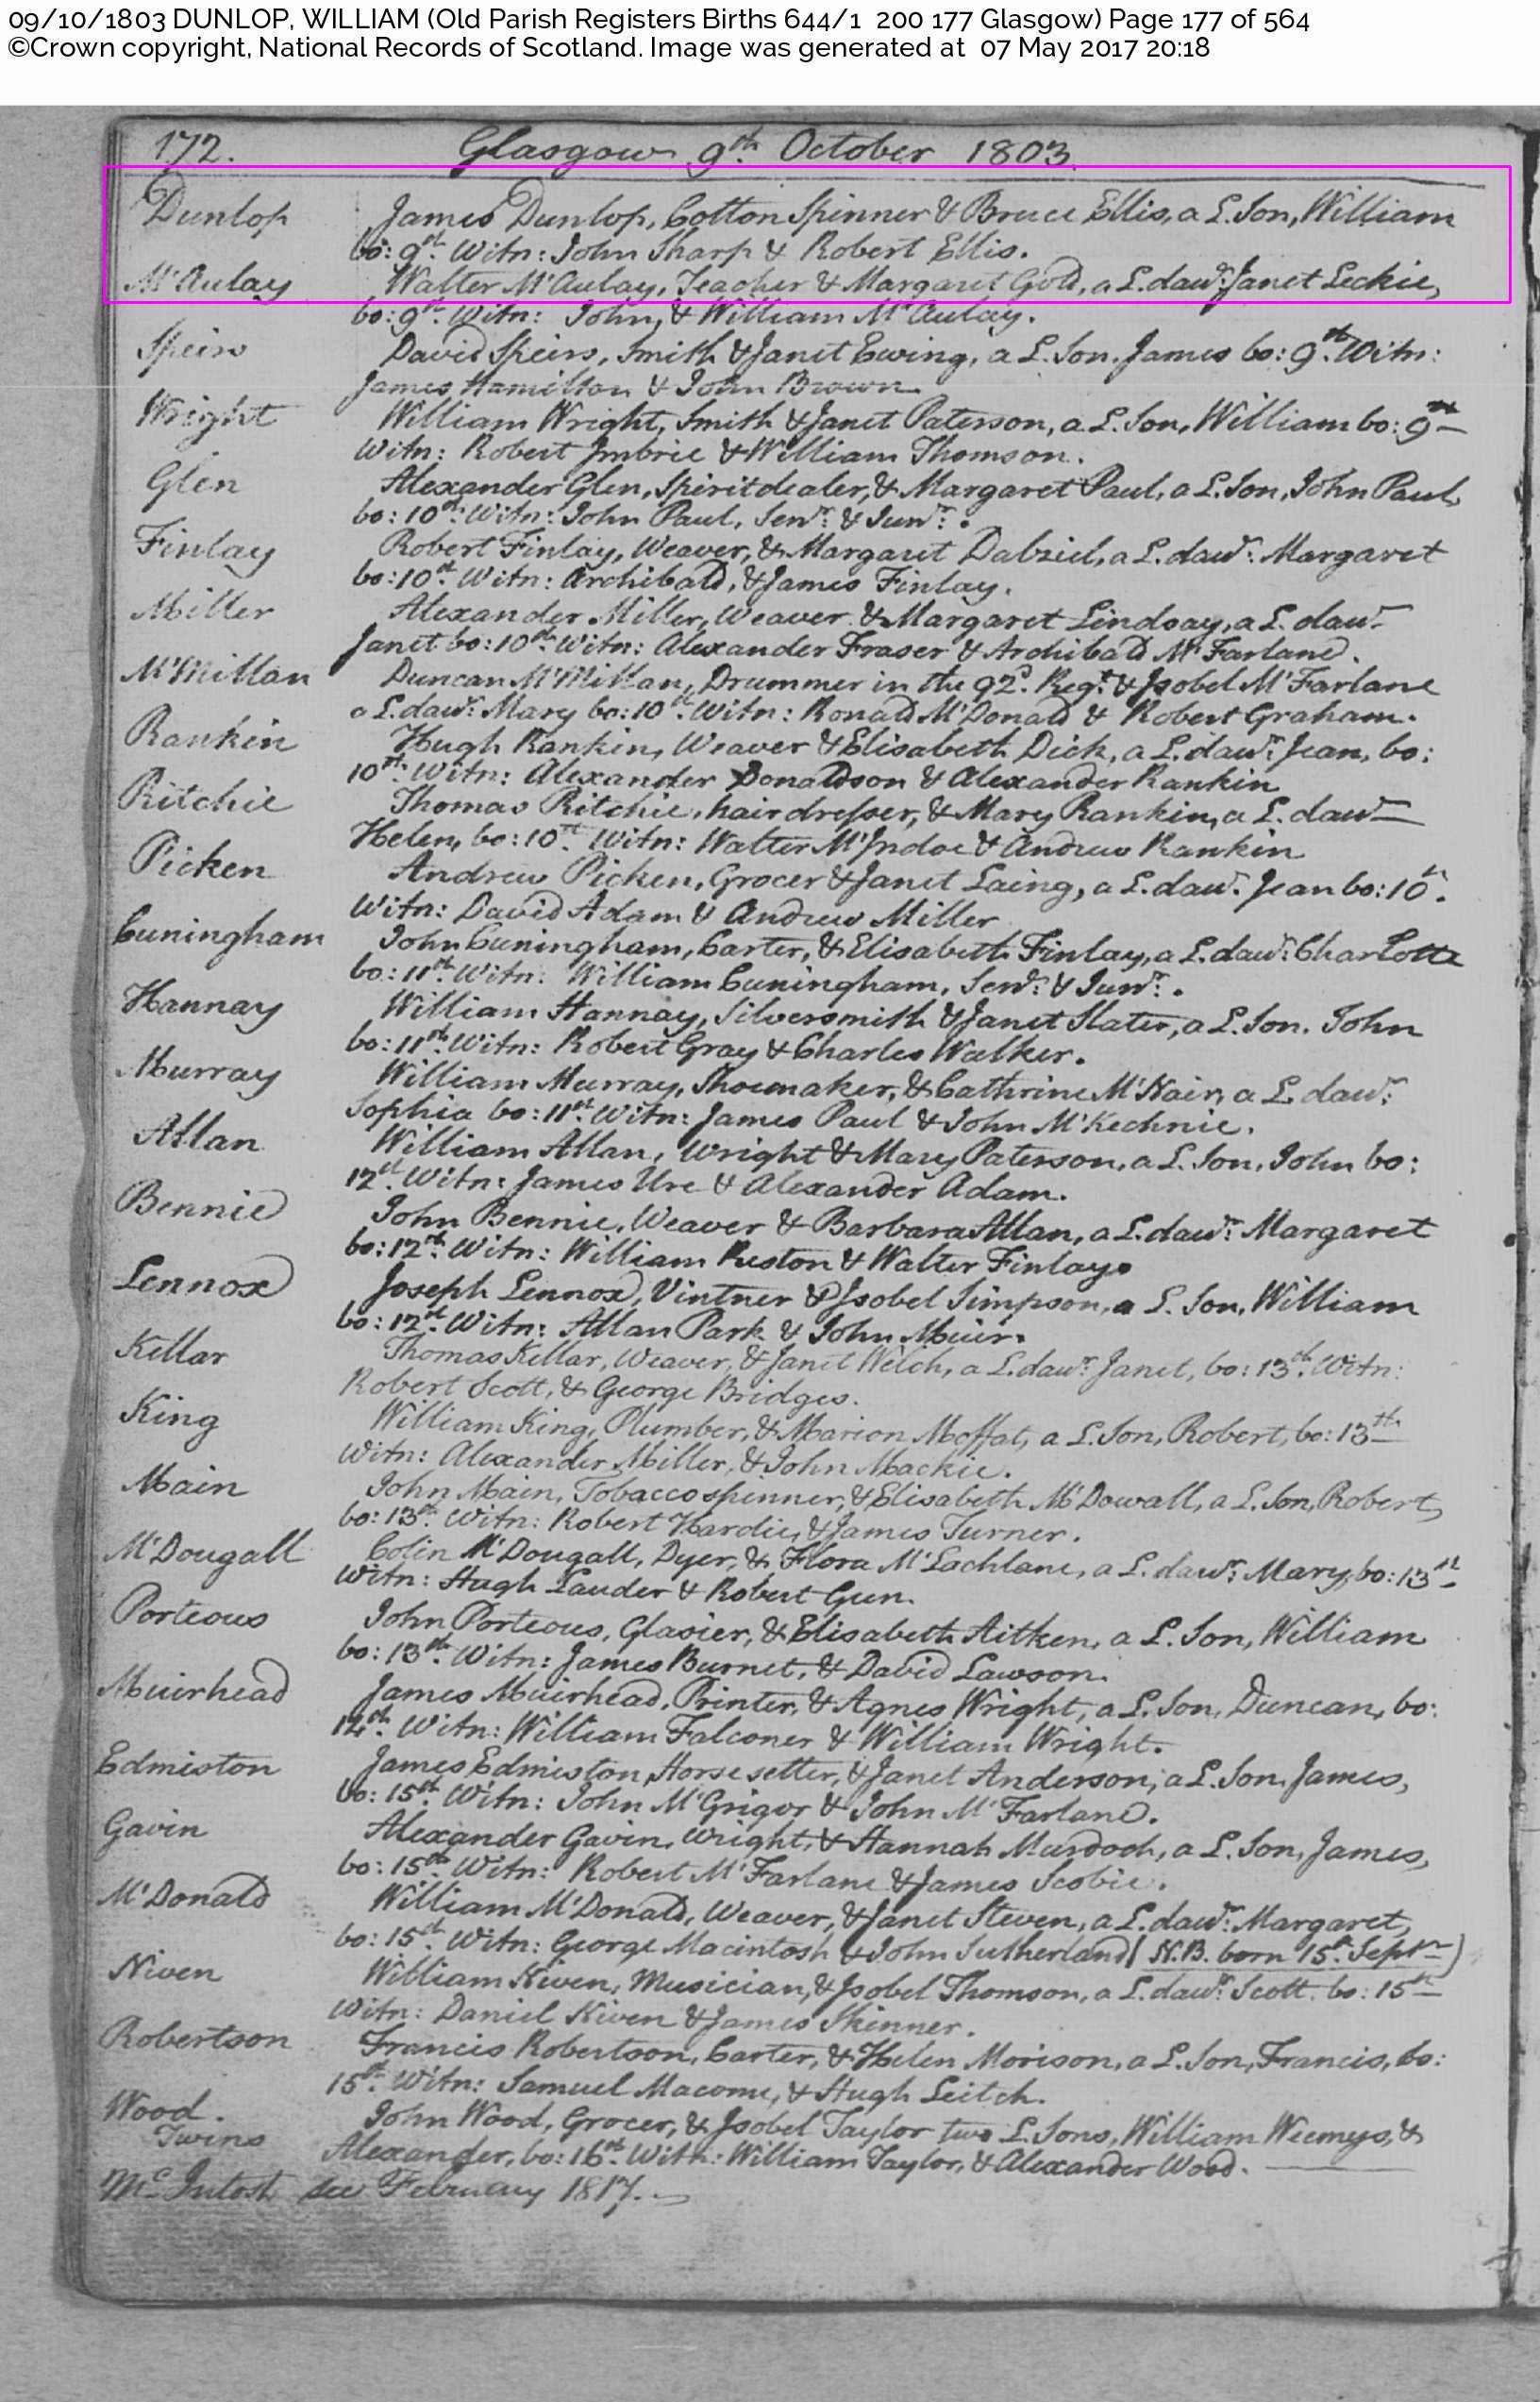 09/10/1803 DUNLOP, WILLIAM (Old Parish Registers Births 644/1 200 177 Glasgow) Page 177 of 564
©Crown copyright, National Records of Scotland. Image was generated at 07 May 2017 20:18
172. Glasgow 9th October 1803
Dunlop James Dunlop, Cotton Spinner & Bruce Ellis, a L. Son, William
bo: 9th Witn: John Sharp & Robert Ellis.
McAulay Walter McAulay, Teacher & Margaret Gold, a L. dawr: Janet Leckie,
bo: 9th Witn: John, & William McAulay.
Speirs David Speirs, Smith & Janet Ewing, a L. Son, James bo: 9th Witn:
James Hamilton & John Brown
Wright William Wright, Smith & Janet Paterson, a L. Son, William bo: 9th
Witn: Robert Imbrie & William Thomson.
Glen Alexander Glen, Spiritdealer, & Margaret Paul, a L. Son, John Paul
bo: 10th Witn: John Paul, Senr: & Junr:.
Finlay Robert Finlay, Weaver, & Margaret Dalziel, a L. dawr: Margaret
bo: 10th Witn: Archibald, & James Finlay.
Miller Alexander Miller, Weaver & Margaret Lindsay, a L. dawr
Janet bo: 10th Witn: Alexander Fraser & Archibald McFarland.
McMillan Duncan McMillan, Drummer in the 92d. Regt. & Isobel McFarlane
a L. dawr: Mary bo: 10th Witn: Ronald McDonald & Robert Graham.
Rankin Hugh Rankin, Weaver & Elisabeth Dick, a L. dawr Jean, bo:
10th Witn: Alexander Donaldson & Alexander Rankin
Ritchie Thomas Ritchie, hairdresser, & Mary Rankin, a L. dawr
Helen, bo: 10th Witn: Walter McIndoe & Andrew Rankin
Picken Andrew Picken, Grocer & Janet Laing, a L. dawr. Jean bo: 10th.
Witn: David Adam & Andrew Miller
Cuningham John Cuningham, Carter, & Elisabeth Finlay, a L. dawr: Charlotte
bo: 11th Witn: William Cuningham, Senr: & Junr:.
Hannay William Hannay, Silversmith & Janet Slater, a L. Son. John
bo: 11th Witn: Robert Gray & Charles Walker.
Murray William Murray, Shoemaker, & Cathrine McNair, a L. dawr:
Sophia bo: 11th Witn: James Paul & John McKechnie.
Allan William Allan, Wright & Mary Paterson, a L. Son, John bo:
12th Witn: James Ure & Alexander Adam.
Bennie John Bennie, Weaver & Barbara Allan, a L. dawr: Margaret
bo: 12th Witn: William Reston & Walter Finlay.
Lennox Joseph Lennox, Vintner & Isobel Simpson, a L. Son, William
bo: 12th Witn: Allan Park & John Muir.
Kellar Thomas Kellar, Weaver, & Janet Welch, a L. dawr Janet, bo: 13th. Witn:
Robert Scott, & George Bridges.
King William King, Plumber, & Marion Moffat, a L. Son, Robert, bo: 13th.
Witn: Alexander Miller, & John Mackie.
Main John Main, Tobaccospinner, & Elisabeth McDowall, a L. Son, Robert,
bo: 13th. Witn: Robert Hardie, & James Turner.
McDougall Colin McDougall, Dyer, & Flora McLachlane, a L. dawr: Mary, bo: 13th
Witn: Hugh Lauder & Robert Gun.
Porteous John Porteous, Glasier, & Elisabeth Aitken, a L. Son, William
bo: 13th. Witn: James Burnet, & David Lawson.
Muirhead James Muirhead, Printer, & Agnes Wright, a L. Son, Duncan, bo:
14th. Witn: William Falconer & William Wright.
Edmiston James Edmiston, Horse setter, & Janet Anderson, a L. Son, James,
bo: 15th Witn: John McGrigor & John McFarland.
Gavin Alexander Gavin, Wright, & Hannah Murdoch, a L. Son, James,
bo: 15th Witn: Robert McFarlane & James Scobie.
McDonald William McDonald, Weaver, & Janet Steven, a L. dawr: Margaret,
bo: 15th. Witn: George Macintosh & John Sutherland (N.B. born 15th. Septr)
Niven William Niven, Musician, & Isobel Thomson, a L. dawr: Scott. bo: 15th
Witn: Daniel Niven & James Skinner.
Robertson Francis Robertson, Carter, & Helen Morison, a L. Son, Francis, bo:
15th. Witn: Samuel Macome, & Hugh Leitch.
Wood. John Wood, Grocer, & Isobel Taylor two L. Sons, William Weemys, &
Twins Alexander, bo: 16th. Witn: William Taylor, & Alexander Wood.
McIntosh see February 1817.